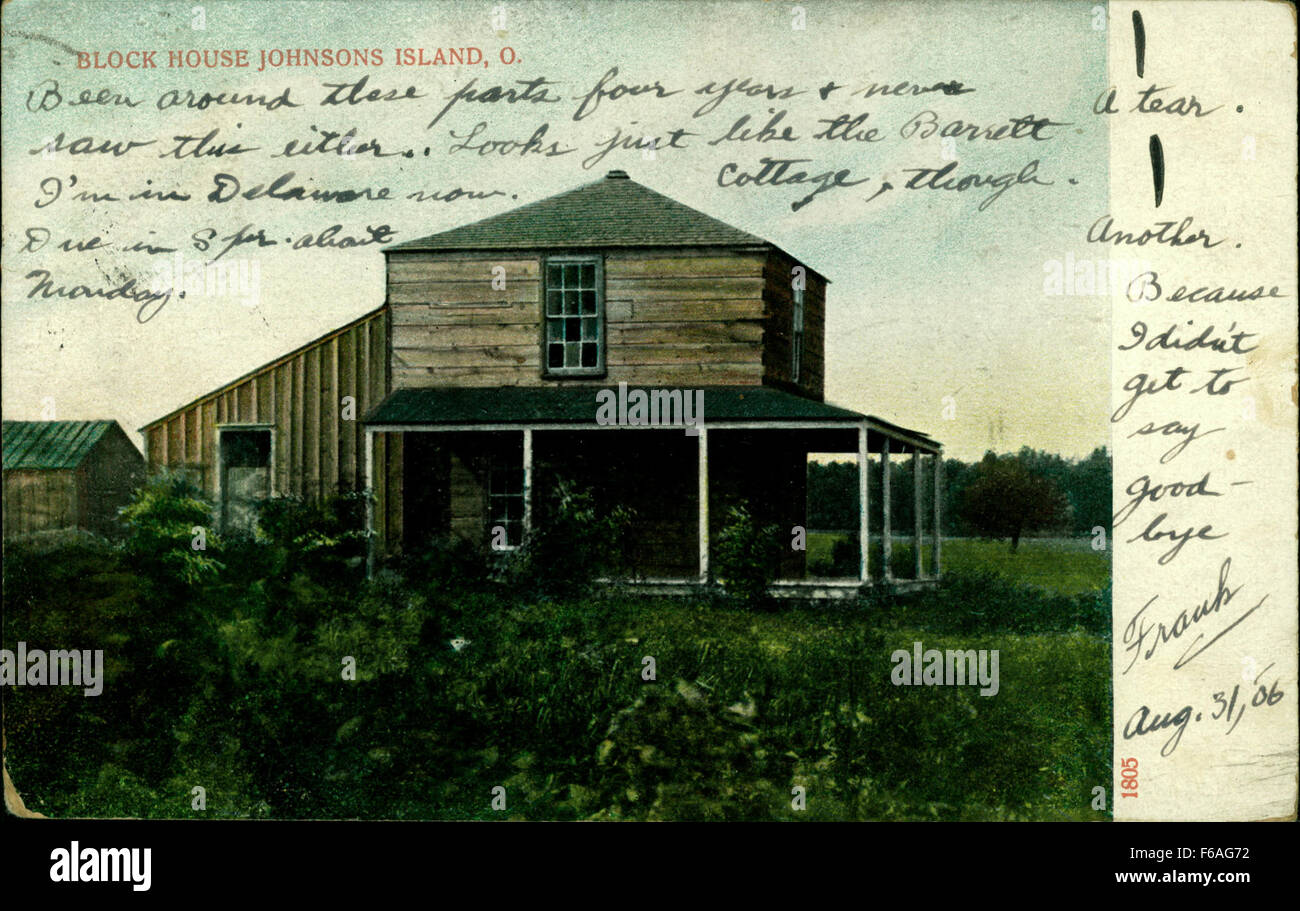 BLOCK HOUSE JOHNSONS ISLAND, O.
Been around these parts four years & never
saw this either.. Looks just like the Barrett
Cottage, though.
I'm in Delaware now.
Due in Spr. about
Monday.
A tear.
Another.
Because
I didn't
get to
say
good-
bye
Frank
Aug. 31, '06
1805
alamy
alamy stock photo
Image ID: F6AG72
www.alamy.com